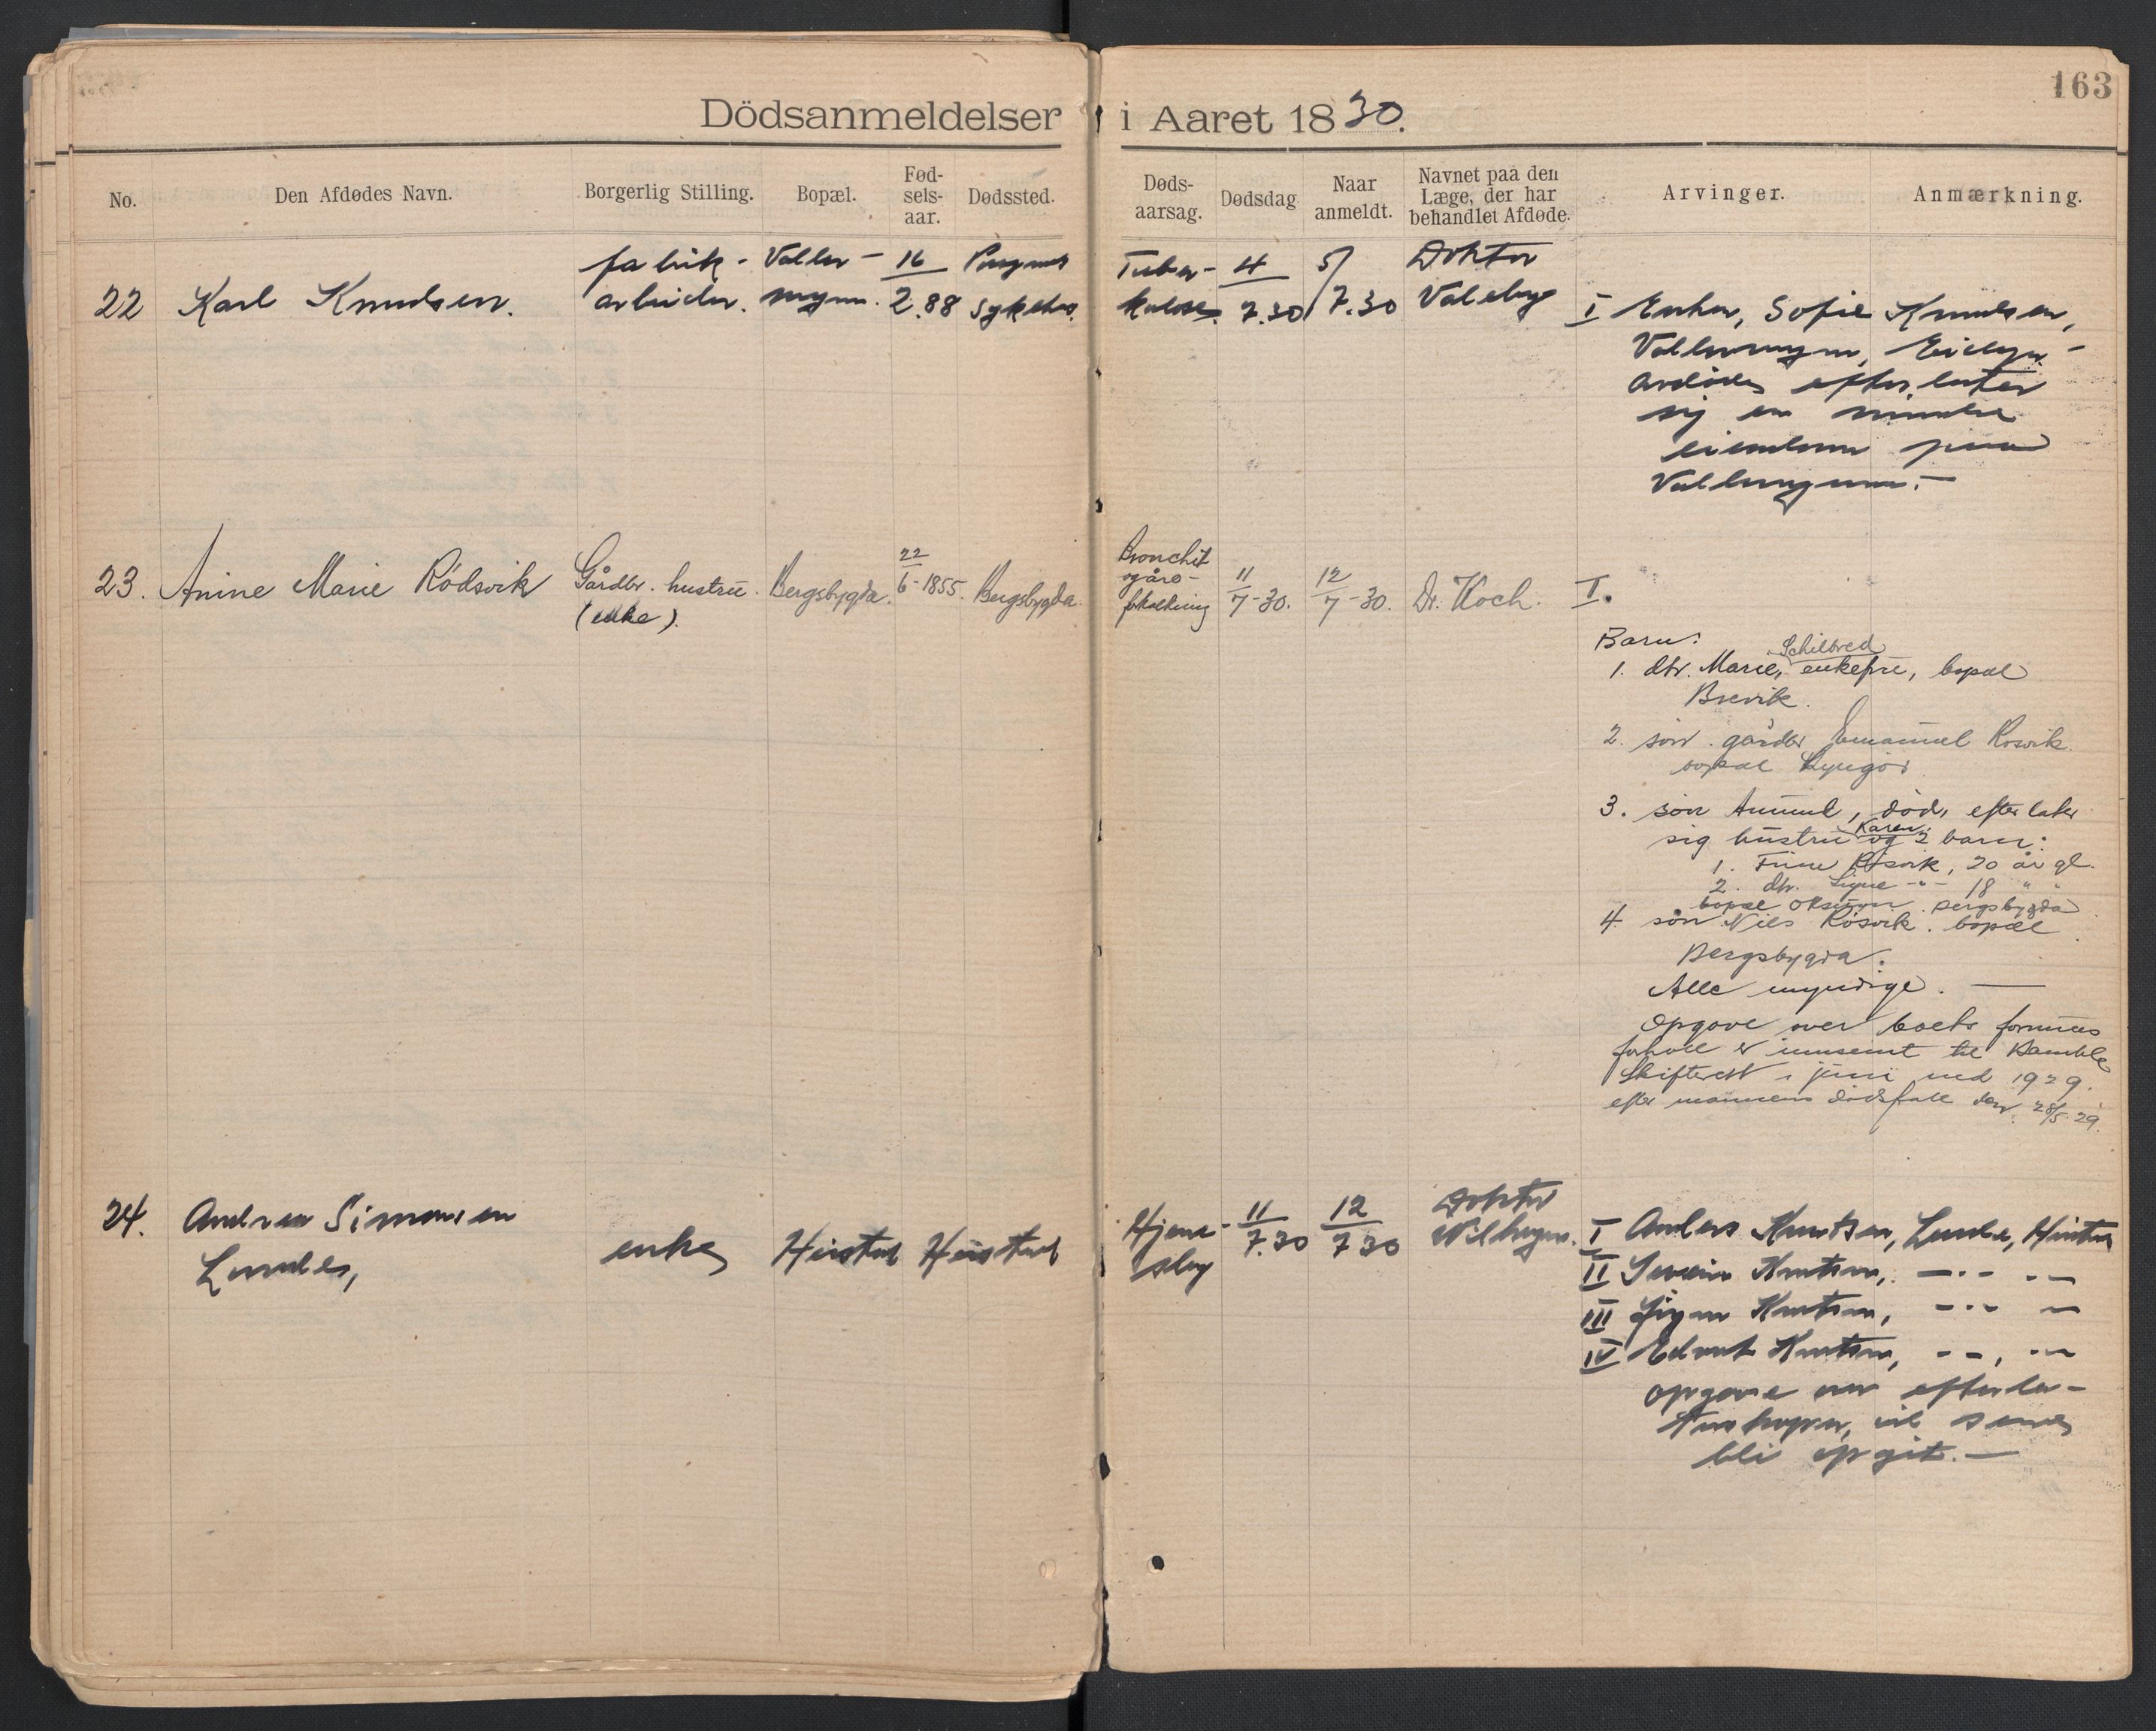 163
Dödsanmeldelser i Aaret 1830.
No.
Den Afdødes Navn.
Borgerlig Stilling.
Bopæl.
Fød-
sels-
aar.
Dødssted.
Døds-
aarsag.
Dødsdag
Naar
anmeldt.
Navnet paa den
Læge, der har
behandlet Afdøde.
Arvinger.
Anmærkning.
22 Karl Knudsen.
fabrik-
arbeider.
Valler-
myrn.
16
2.88
Porsgrunds
sykehus.
Tuber-
kulose.
4
7.30
5/
7.30
Doktor
Valebjg
I Enken, Sofie Knudsen,
Vallermyrn, Eidgn-
avdöde efterlater
sig en mindre
eiendom paa
Vallermyrn.-
23. Anine Marie Rödsvik
Gårdbr. hustru.
(enke).
Bergsbygda.
22
6-1855.
Bergsbygda.
Bronchit
og åre-
forkalkning
11
7-30.
12
7-30.
Dr. Koch.
I.
Barn:
Schilbred
1. dtr. Marie, enkefru, bopæl
Brevik.
2. sön. gårdbr Emanuel Rösvik.
bopæl Lyngör
3. sön Anund, död, efterlater
sig hustru Karen og 2 barn:
1. Rösvik, 20 år gl.
2. dtr. Signe -"- 18 " "
bopæl Bergsbygda
4. sön Nils Rösvik. bopæl
Bergsbygda.
Alle myndige. —
Opgave over boets formues
forhold er innsendt til Bamble
Skifterett i juni med 1929.
efter mannens dödsfall den 28/5-29.
24. Andrea Simonsen
Lunde,
enke
Heistad
Heistad
Hjerne-
slag
11
7.30
12
7 30
Doktor
I Anders Knutsen, Lunde,
II Knutsen, -"- "-
III Knutsen, -"- "-
IV Edvart Knutsen, -"-, "-
opgave over efterla-
tenskapen, vil senere
bli opgit.-